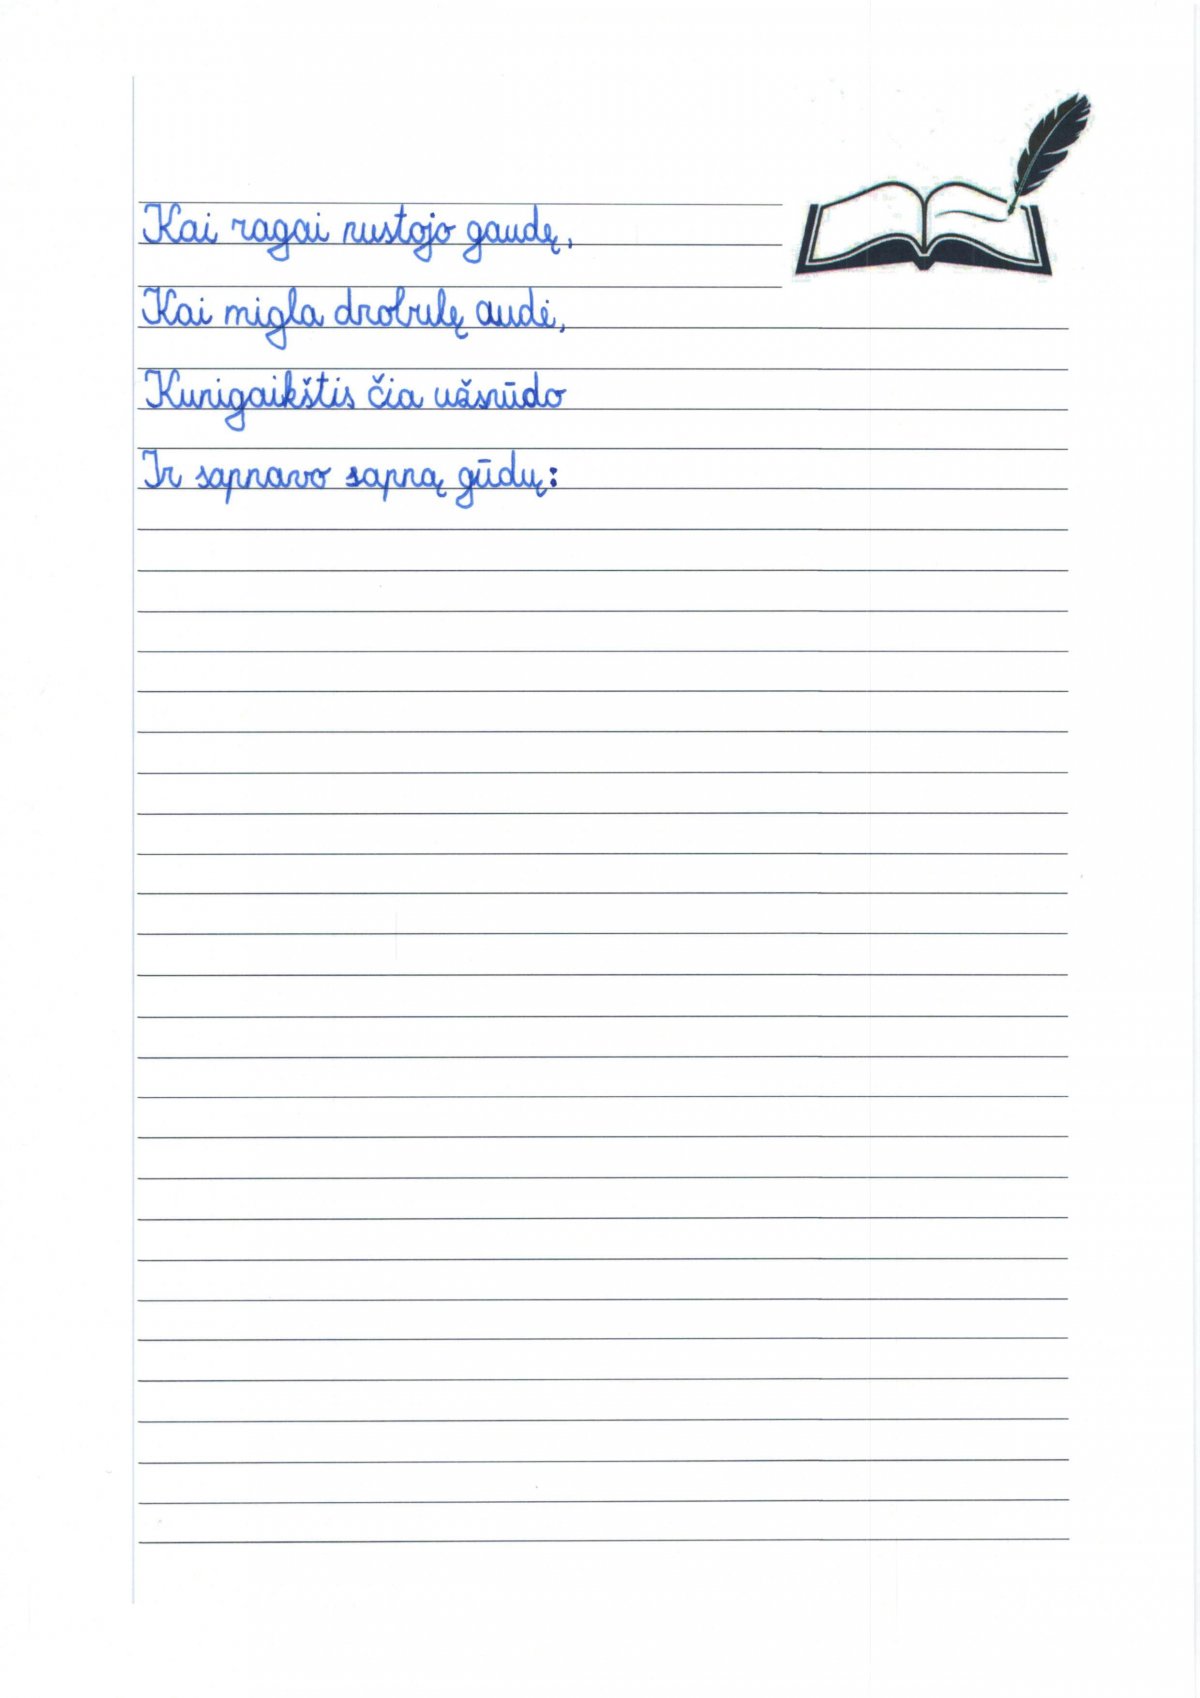 Kai ragai rustojo gaudę,
Kai migla drobulę audė,
Kunigaikštis čia užsnūdo
Ir sapnavo sapną gūdų: